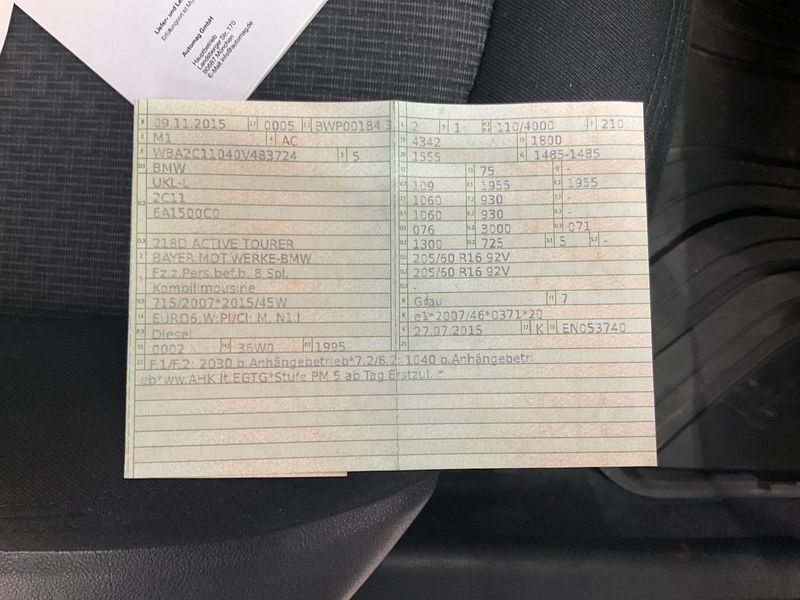 Liefer- und
Automag GmbH
Hauptbetrieb
Landsberger Str. 170
80687 München
E-Mail: info@automag.de
B 09.11.2015 2.1 0005 2.2 BWP001B4 3
J M1 4 AC
E WBA2C11040V483724 3 5
D.1 BMW
UKL-L
D.2 2C11
EA1500C0
D.3 218D ACTIVE TOURER
2 BAYER.MOT.WERKE-BMW
5 Fz.z.Pers.bef.b. 8 Spl.
Kombilimousine
V.9 715/2007*2015/45W
14 EURO6;W;PI/CI; M, N1 I
P.3 Diesel
10 0002 14.1 36W0 P.1 1995
22 F.1/F.2: 2030 b.Anhängebetrieb*7.2/8.2: 1040 b.Anhängebetri
eb*ww.AHK lt.EGTG*Stufe PM 5 ab Tag Erstzul. *
L 2 9 1 P.2 P.4 110/4000 T 210
18 4342 19 1800
20 1555 G 1485-1485
12 - 13 75 Q -
V.7 109 F.1 1955 F.2 1955
7.1 1060 7.2 930 7.3 -
8.1 1060 8.2 930 8.3 -
U.1 076 U.2 3000 U.3 071
O.1 1300 O.2 725 S.1 5 S.2 -
15.1 205/60 R16 92V
15.2 205/60 R16 92V
15.3 -
R Grau 11 7
K e1*2007/46*0371*20
6 27.07.2015 17 K 16 EN053740
21